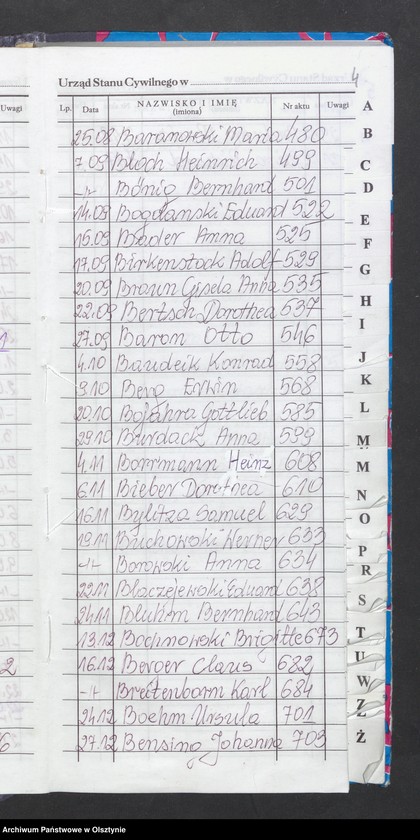 4
Urząd Stanu Cywilnego w
Uwagi Lp. Data NAZWISKO I IMIĘ (imiona) Nr aktu Uwagi
25.08 Baranowski Maria 480
7.09 Bloch Heinrich 499
-"- Bönig Bernhard 501
14.09 Bogdanski Eduard 522
15.09 Bader Anna 525
17.09 Birkenstock Adolf 529
20.09 Braun Gisela Anna 535
22.09 Bertsch Dorothea 537
27.09 Baron Otto 546
4.10 Baudeik Konrad 558
9.10 Berg Erwin 568
20.10 Bojahra Gottlieb 585
29.10 Burdack Anna 599
4.11 Borrmann Heinz 608
6.11 Bieber Dorothea 610
16.11 Bylitza Samuel 629
19.11 Buchowski Werner 633
-"- Borowski Anna 634
22.11 Blaczejewski Eduard 638
24.11 Bluhm Bernhard 643
13.12 Bochnowski Brigitte 673
16.12 Berger Claus 682
-"- Breitenborn Karl 684
24.12 Boehm Ursula 701
27.12 Bensing Johanna 703
A
B
C
D
E
F
G
H
I
J
K
L
M
M
N
O
P
R
S
T
U
W
Z
Ż
Archiwum Państwowe w Olsztynie